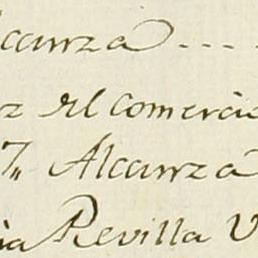 lcanza ....
z del comercio
7,, Alcanza
ia Revilla V